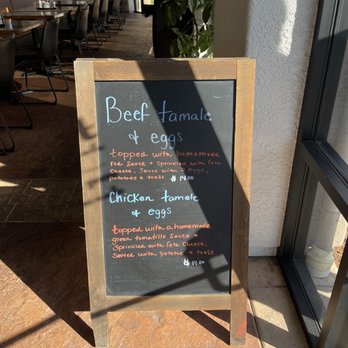 Beef tamale
& eggs
topped with homemade
red sauce + sprinkled with feta
cheese. Served with eggs,
potatoes & toast $14.00
Chicken tamale
& eggs
topped with a homemade
green tomatillo sauce +
sprinkled with feta cheese.
Served with potatoe & toast
$14.00